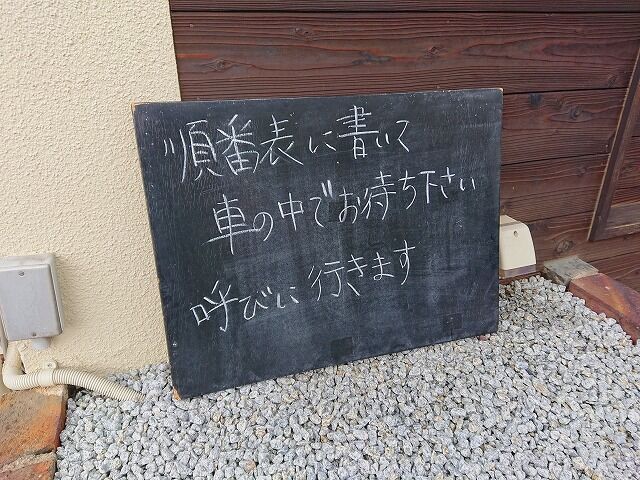 順番表に書いて
車の中でお待ち下さい
呼びに行きます